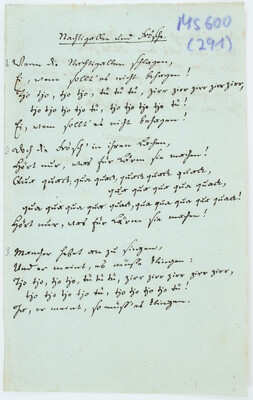 MS 600
(291)
Nachtigallen und Frösche.
1. Wenn die Nachtigallen schlagen,
Ei, wem sollt' es nicht behagen!
Tjo tjo, tjo tjo, tü tü tü, zirr zirr zirr zirr zirr,
tjo tjo tjo tjo tü, tjo tjo tjo tjo tü!
Ei, wem sollt' es nicht behagen!
2. Doch die Frösch' in ihren Lachen,
Hört nur, was für Lärm sie machen!
Qua quack, qua quack, quack quack quack,
qua qua qua qua quack,
qua qua qua qua quack, qua qua qua qua quack!
Hört nur, was für Lärm sie machen!
3. Mancher hebet an zu singen,
Und er meint, es müsse klingen:
Tjo tjo, tjo tjo, tü tü tü, zirr zirr zirr zirr zirr,
tjo tjo tjo tjo tü, tjo tjo tjo tjo tü!
er meint, so müss' es klingen.